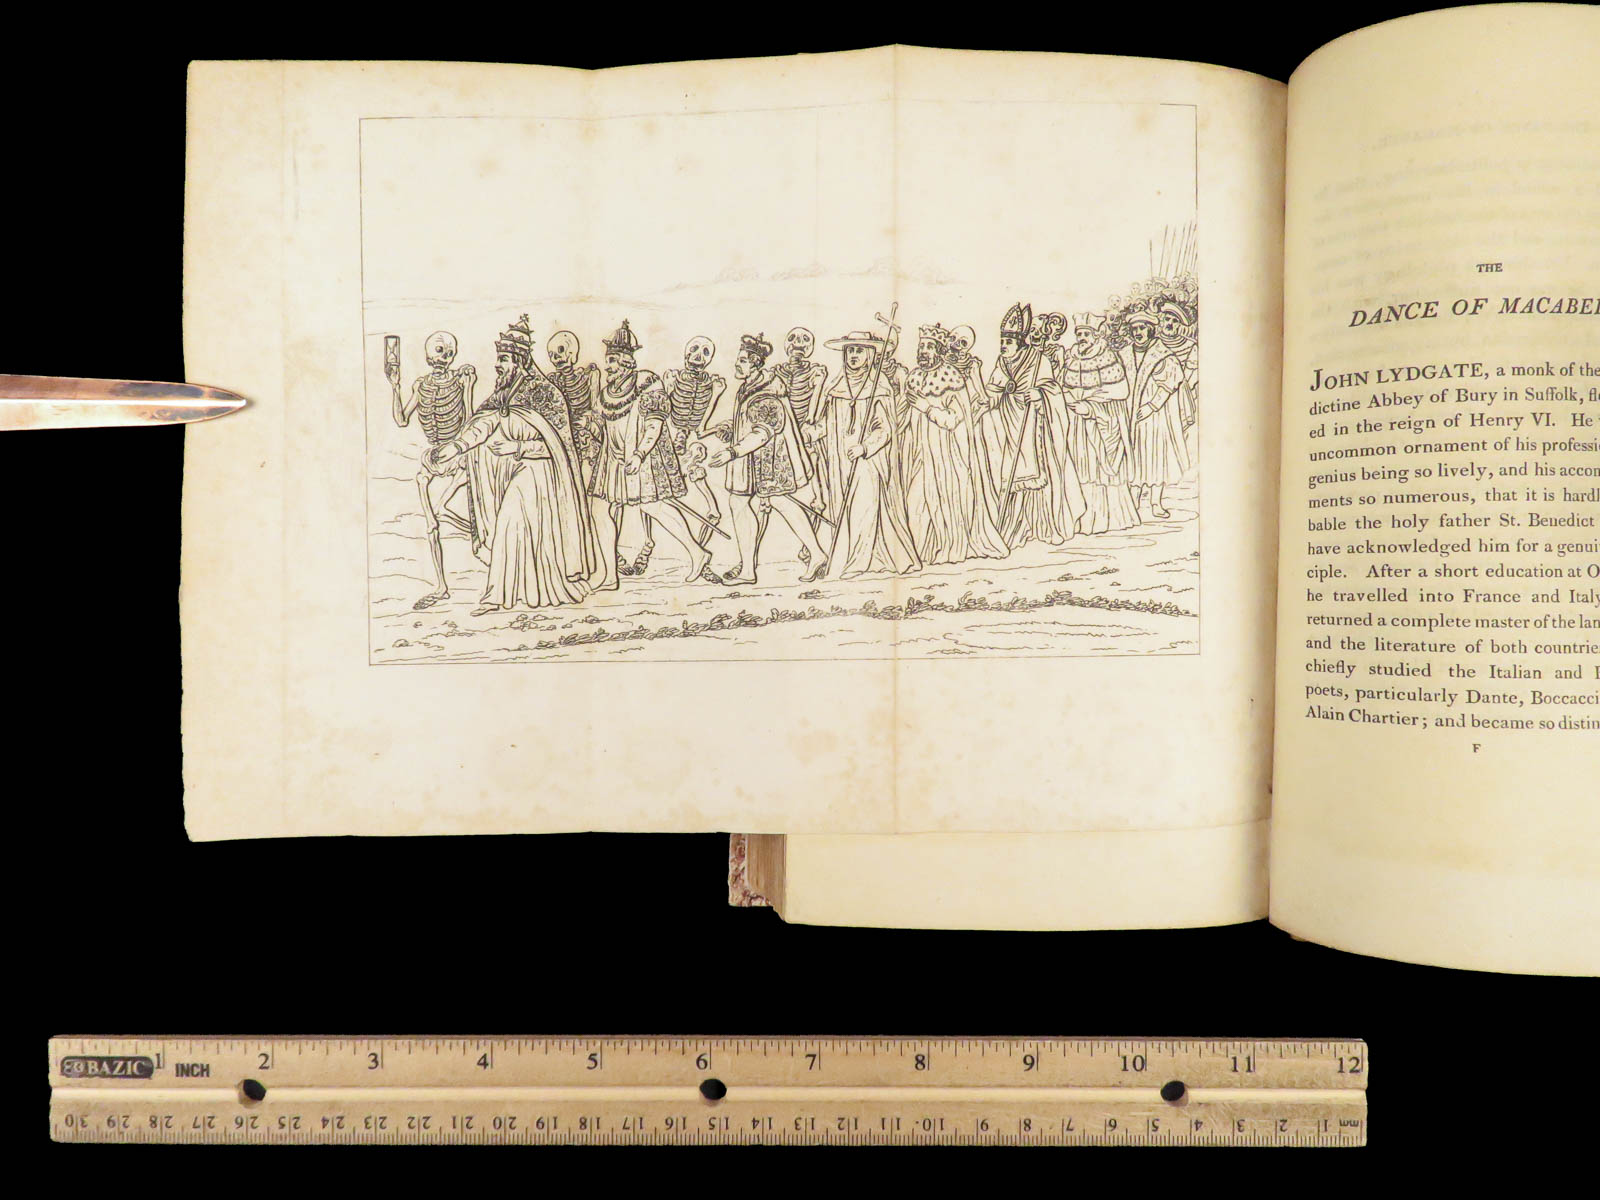 THE
DANCE OF MACABE
JOHN LYDGATE, a monk of the
dictine Abbey of Bury in Suffolk, fl
ed in the reign of Henry VI. He
uncommon ornament of his professi
genius being so lively, and his accom
ments so numerous, that it is hardl
bable the holy father St. Benedict
have acknowledged him for a genui
ciple. After a short education at O
he travelled into France and Italy
returned a complete master of the lan
and the literature of both countrie
chiefly studied the Italian and
poets, particularly Dante, Boccacci
Alain Chartier; and became so distin
F
BAZIC 1 INCH 2 3 4 5 6 7 8 9 10 11 12
30 29 28 27 26 25 24 23 22 21 20 19 18 17 16 15 14 13 12 11 10 9 8 7 6 5 4 3 2 1 mm